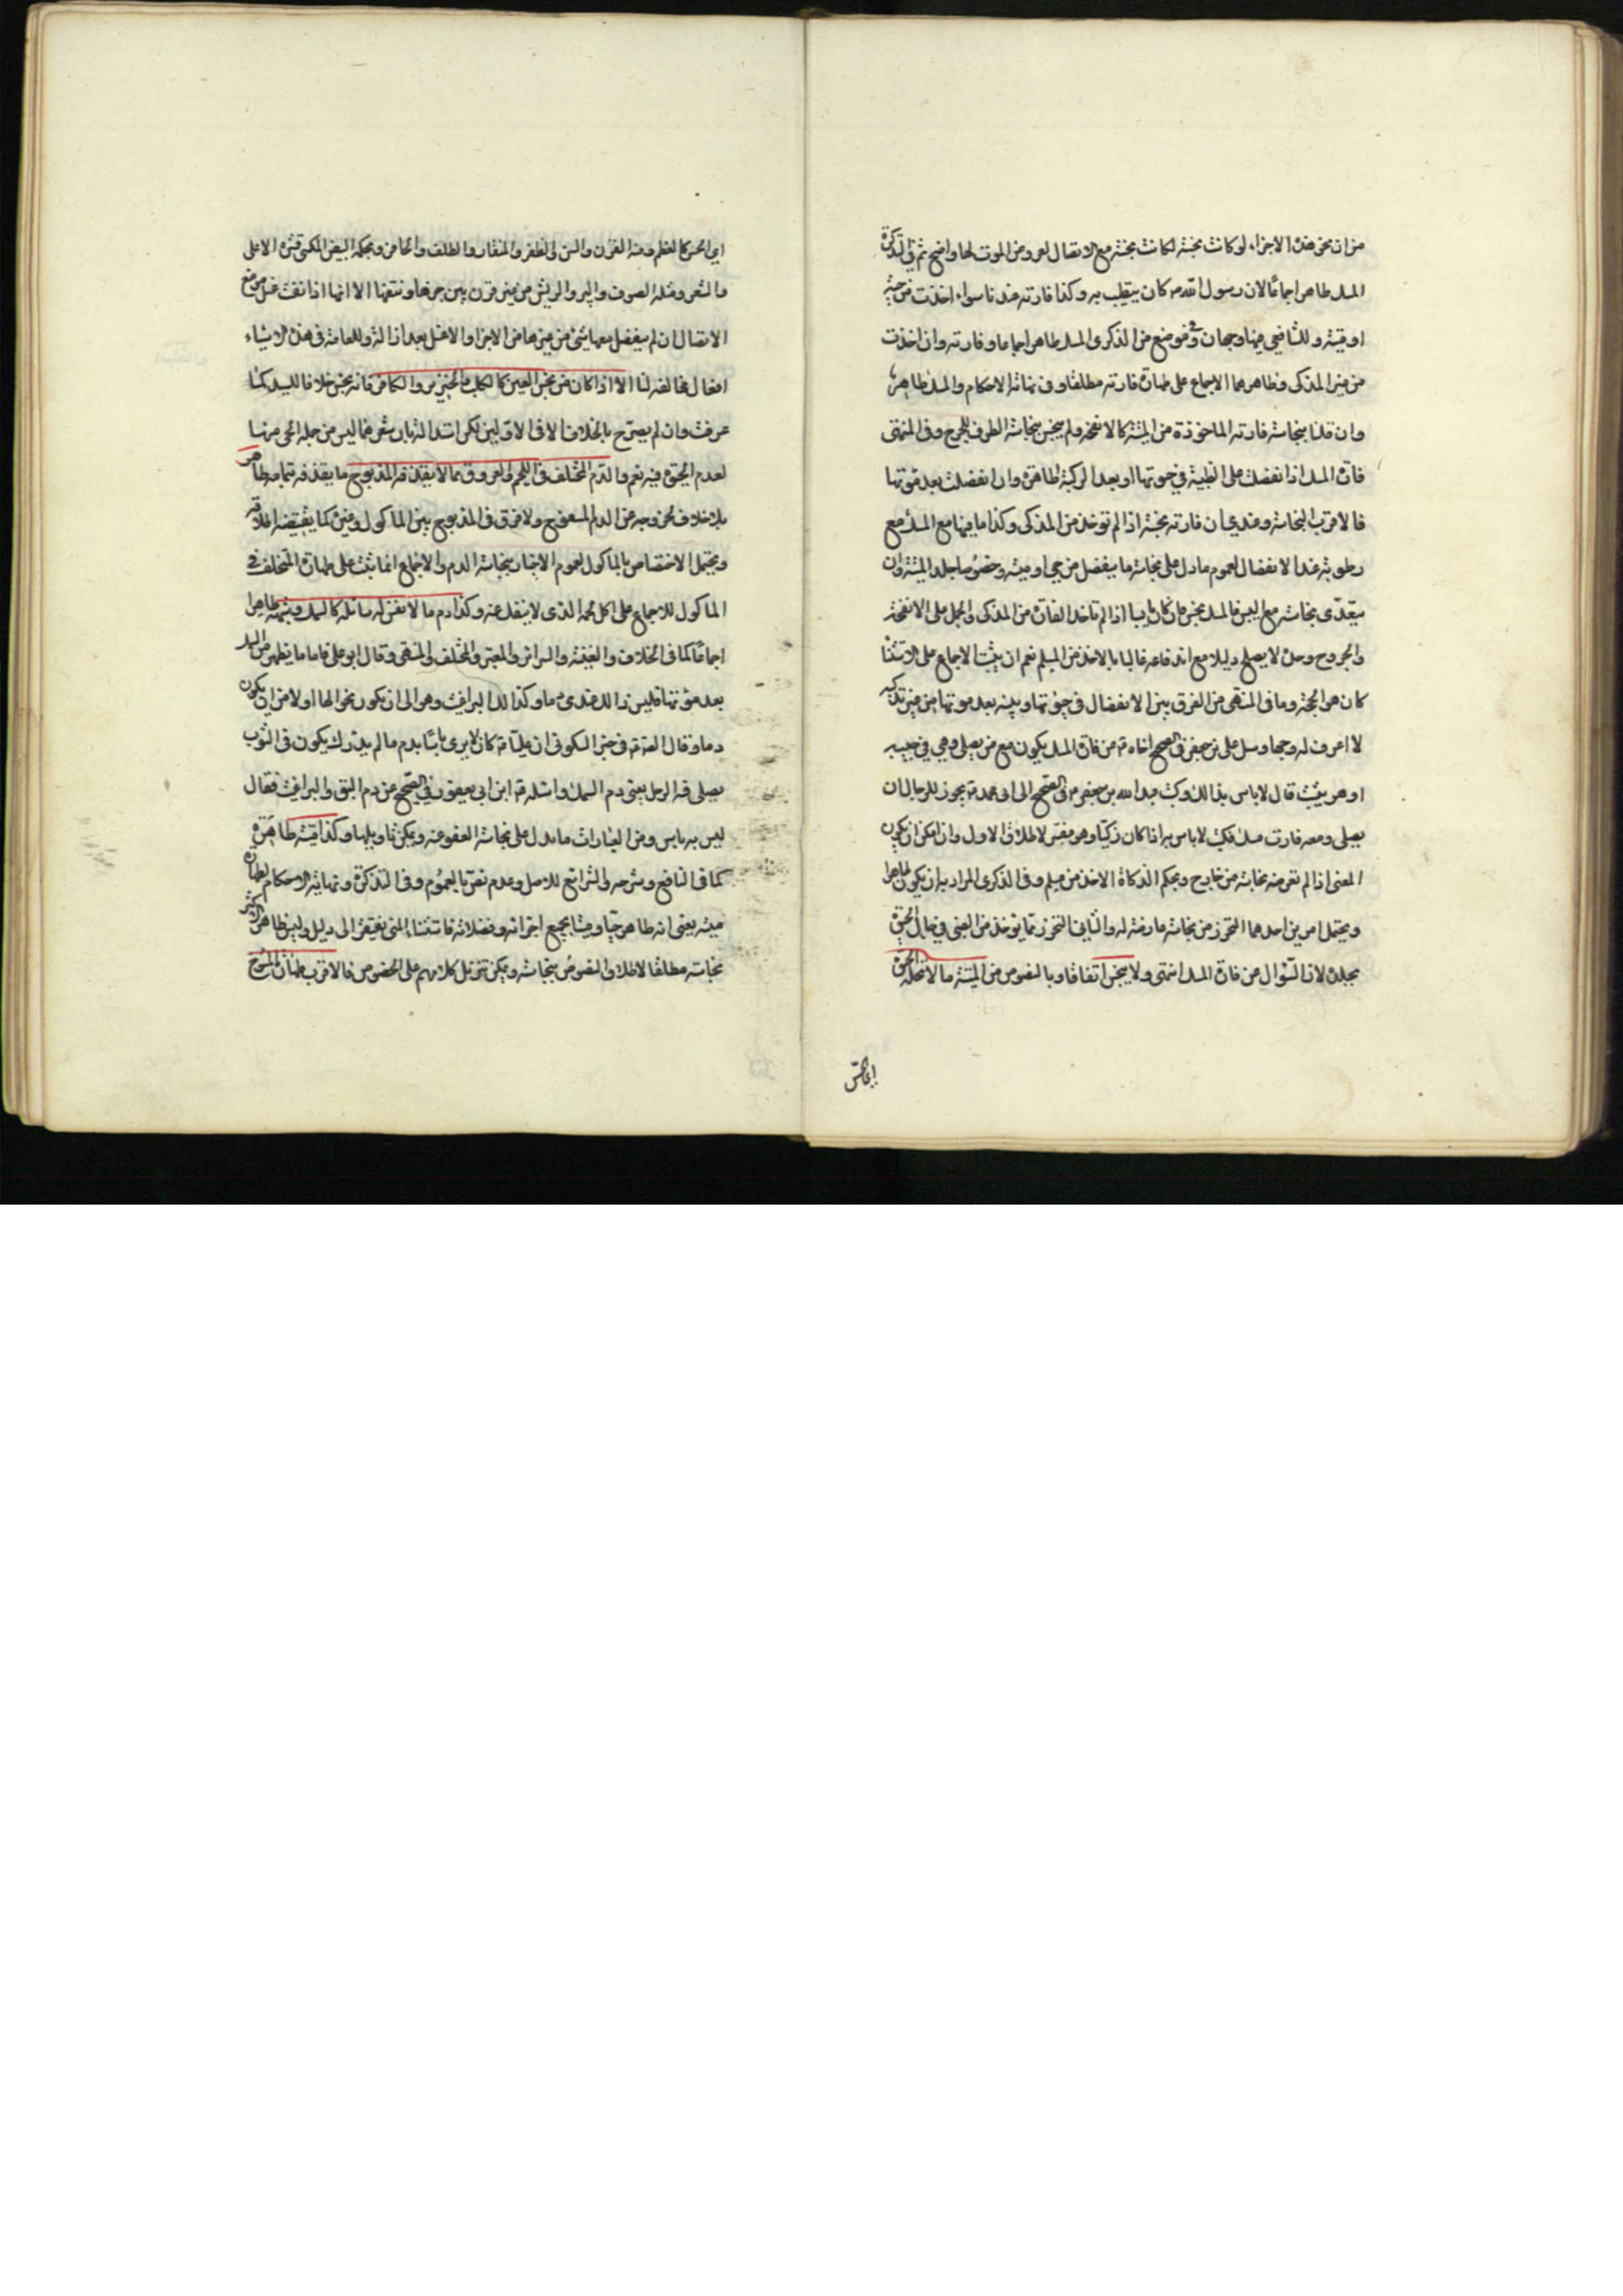 من ان نحو هذه الاجزاء لو كانت نجسة لكانت نجسة مع الاتصال لعروض الموت لها واضح ثم في التذكرة
المسك طاهر اجماعا لان رسول الله ص كان يتطيب به وكذا فارته عندنا سواء اخذت من حية
او ميتة وللشافعي فيها وجهان وفي موضع من الذكرى المسك طاهر اجماعا وفارته وان اخذت
من غير المذكى وظاهرهما الاجماع على طهارة فارته مطلقا وفي نهاية الاحكام والمسك طاهر
وان قلنا بنجاسة فارته الماخوذة من الميتة كالانفحة ولم ينجس بنجاسة الظرف للحرج وفي المنتهى
فارة المسك اذا انفصلت عن الظبية في حيوتها او بعد التزكية طاهرة وان انفصلت بعد موتها
فالاقرب النجاسة وعندي ان فارته نجسة اذا لم توخذ من المذكى وكذا ما فيها مع المسك مع
رطوبته عند الانفصال لعموم ما دل على نجاسة ما ينفصل من حي او ميت وخصوصا جلد الميتة وان
يتعدى نجاسته مع اليبس فالمسك نجس وان كان يابسا اذا لم تاخذ الفارة من المذكى والحمل على الانفحة
والجروح وحده لا يصلح دليلا مع اندفاعه غالبا بالاخذ من المسلم نعم ان يثبت الاجماع على الاستثنا
كان هو الحجة وما في المنتهى من الفرق بين الانفصال في حيوتها وبينه بعد موتها من غير تذكية
لا اعرف له وجها وسل على بن جعفر في الصحيح اخاه ع عن فارة المسك يكون مع من يصلي وهي في جيبه
او هو يثبت قال لا باس بذلك وكتب عبد الله بن جعفر في الصحيح الى ابى محمد ع يجوز للرجل ان
يصلي ومعه فارة مسك فكتب لا باس به اذا كان زكيا وهو مفسر لاطلاق الاول وان امكن ان يكون
المعنى اذا لم تعرضه نجاسة من خارج وبحكم الذكاة الاخذ من مسلم وفي الذكرى المراد به ان يكون طاهرا
ويحتمل امرين احدهما التحرز من نجاسة عارضة له والثاني التحرز مما يوخذ من الظبي في حال الحيوة
بجلده لان السؤال عن فارة المسك انتهى ولا ينجس اتفاقا وبالنصوص من الميتة ما لا تحله الحيوة
اي الحس
اي الحس كالعظم ومنه القرن والسن والظفر والمنقار والظلف والحافر وبحكمه البيض المكتسي قشره الاعلى
والشعر ومثله الصوف والوبر والريش من غير فرق بين جزها ونتفها الا انها اذا نتفت غسل موضع
الاتصال ان لم ينفصل معها شئ من غيرها من الاجزا والا غسل بعد ازالته وللعامة في هذه الاشياء
اقوال مخالفة لنا الا اذا كان من نجس العين كالكلب والخنزير والكافر فانه نجس خلافا للسيد كما
عرفت وان لم يصرح بالخلاف الا في الاولين لكن استدلاله بان شعرهما ليس من جملة الحى منهما
لعدم الحيوة فيه نعم والدم المتخلف في اللحم والعروق مما لا يقذفه المذبوح ما يقذفه تمامه طاهر
بلا خلاف لخروجه عن الدم المسفوح ولا فرق في المذبوح بين الماكول وغيره كما يقتضيه اطلاقه
ويحتمل الاختصاص بالماكول لعموم الاخبار بنجاسة الدم والاجماع انما ثبت على طهارة المتخلف في
الماكول للاجماع على اكل لحمه الذى لا ينفك عنه وكذا دم ما لا نفس له سائلة كالسمك وشبهه طاهرا
اجماعا كما في الخلاف والغنية والسرائر والمعتبر والمختلف والمنتهى وقال ابو على فاما ما يظهر من السمك
بعد موتها فليس ذالك عندى دما وكذا دم البراغيث وهو الى ان يكون نجوا لها اولا من ان يكون
دما وقال الصادق ع في خبر السكوني ان عليا ع كان لا يرى باسا بدم ما لم يذك يكون في الثوب
يصلى فيه الرجل يعنى دم السمك واسئله ع ابن ابى يعفور في الصحيح عن دم البق والبراغيث فقال
ليس به باس ومن العبارات ما يدل على نجاسة العفو عنه ويمكن تاويلها وكذا ميتته طاهرة
كما في النافع وشرحه والشرائع للاصل وعدم نص بالعموم وفي التذكرة ونهاية الاحكام لطهارة
ميتة يعنى انه طاهر حيا وميتا بجميع اجزائه وفضلاته فاستثناء المنى يفتقر الى دليل وليس ظاهر الاكثر
نجاسته مطلقا لاطلاق النصوص بنجاسته ويمكن تنزيل كلامهم على الخصوص فالاقرب طهارة المسوخ